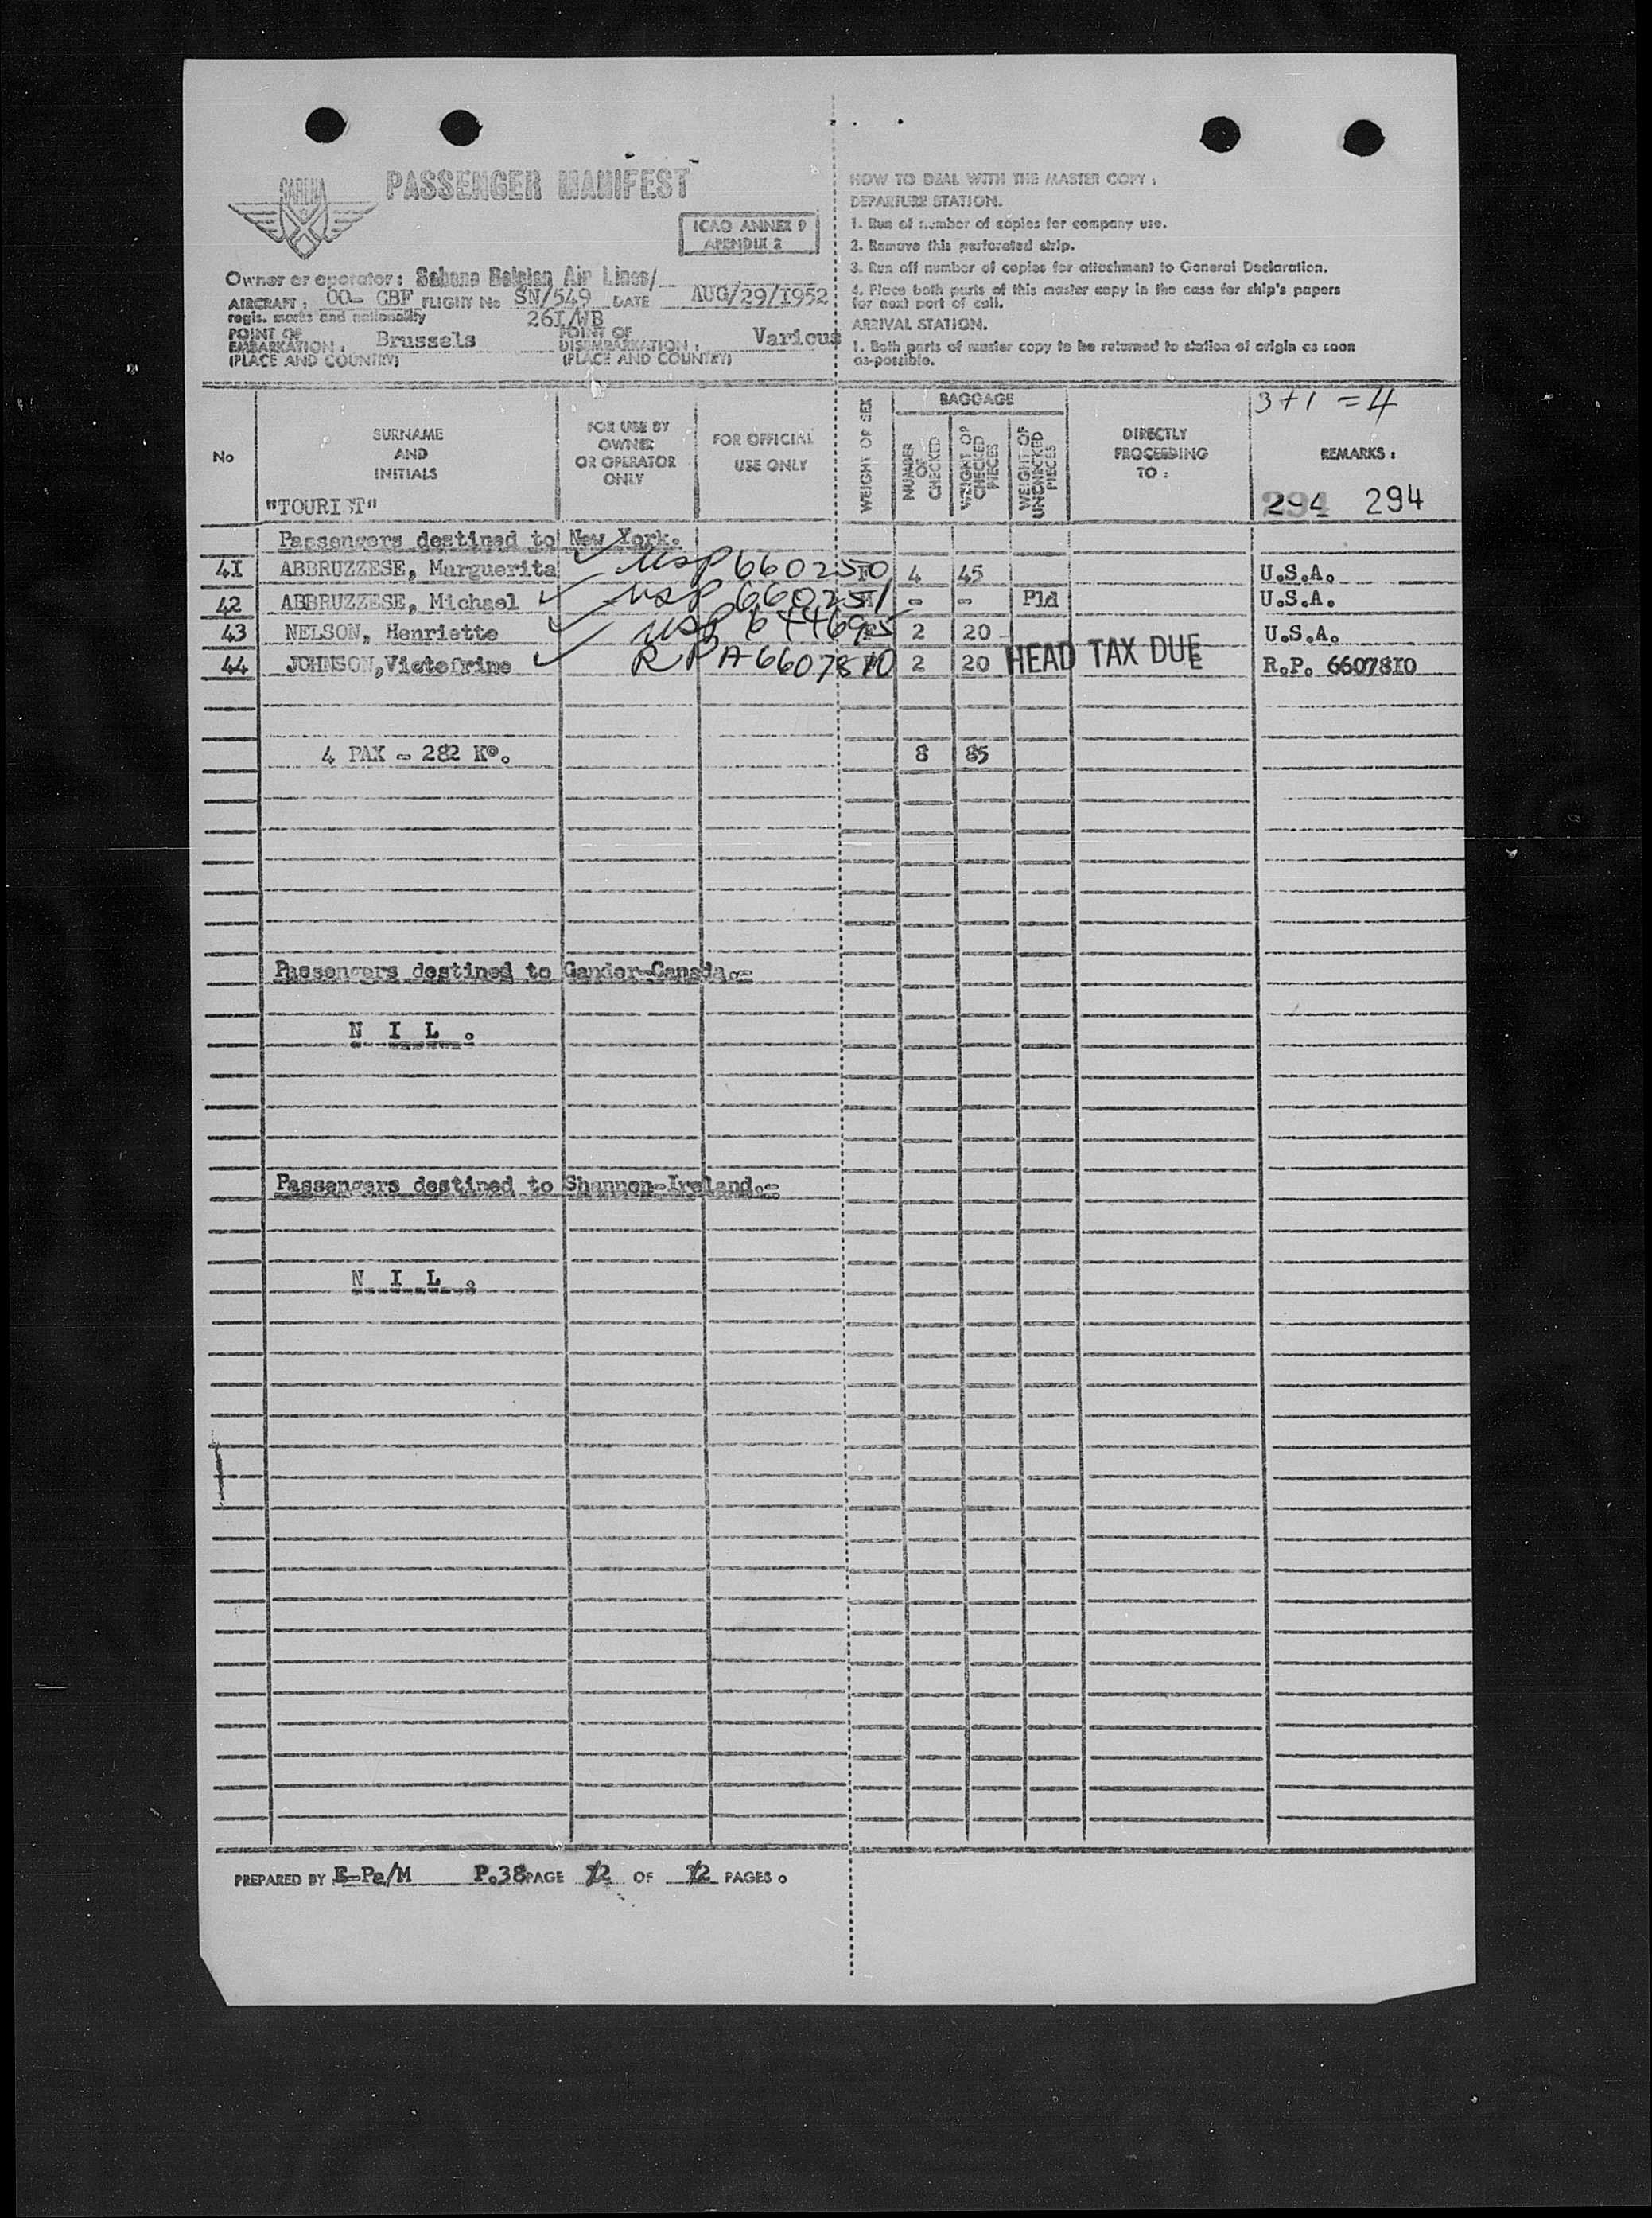 SABENA
PASSENGER MANIFEST
ICAO ANNEX 9
APENDIX 2
Owner or operator: Sabena Belgian Air Lines/
AIRCRAFT: OO- CBF FLIGHT No SN/549 DATE AUG/29/1952
regis. marks and nationality 261/WB
POINT OF EMBARKATION: Brussels POINT OF DISEMBARKATION: Various
(PLACE AND COUNTRY) (PLACE AND COUNTRY)
HOW TO DEAL WITH THE MASTER COPY:
DEPARTURE STATION.
1. Run of number of copies for company use.
2. Remove this perforated strip.
3. Run off number of copies for attachment to General Declaration.
4. Place both parts of this master copy in the case for ship's papers
for next port of call.
ARRIVAL STATION.
1. Both parts of master copy to be returned to station of origin as soon
as-possible.
3+1 =4
No
SURNAME
AND
INITIALS
"TOURIST"
FOR USE BY
OWNER
OR OPERATOR
ONLY
FOR OFFICIAL
USE ONLY
WEIGHT OF SEX
BAGGAGE
NUMBER
OF
CHECKED
WEIGHT OF
CHECKED
PIECES
WEIGHT OF
UNCHECKED
PIECES
DIRECTLY
PROCEEDING
TO:
REMARKS:
294 294
Passengers destined to New York.
41 ABBRUZZESE, Marguerita USP 6602510 F 4 45 U.S.A.
42 ABBRUZZESE, Michael USP 660251 - - Pld U.S.A.
43 NELSON, Henriette USP 2 20 U.S.A.
44 JOHNSON, RPA6607810 2 20 HEAD TAX DUE R.P. 6607810
4 PAX - 282 K°. 8 85
Passengers destined to Gander-Canada.-
N I L .
Passengers destined to Shannon-Ireland.-
N I L .
PREPARED BY E-Pa/M P.38 PAGE 2 OF 2 PAGES.